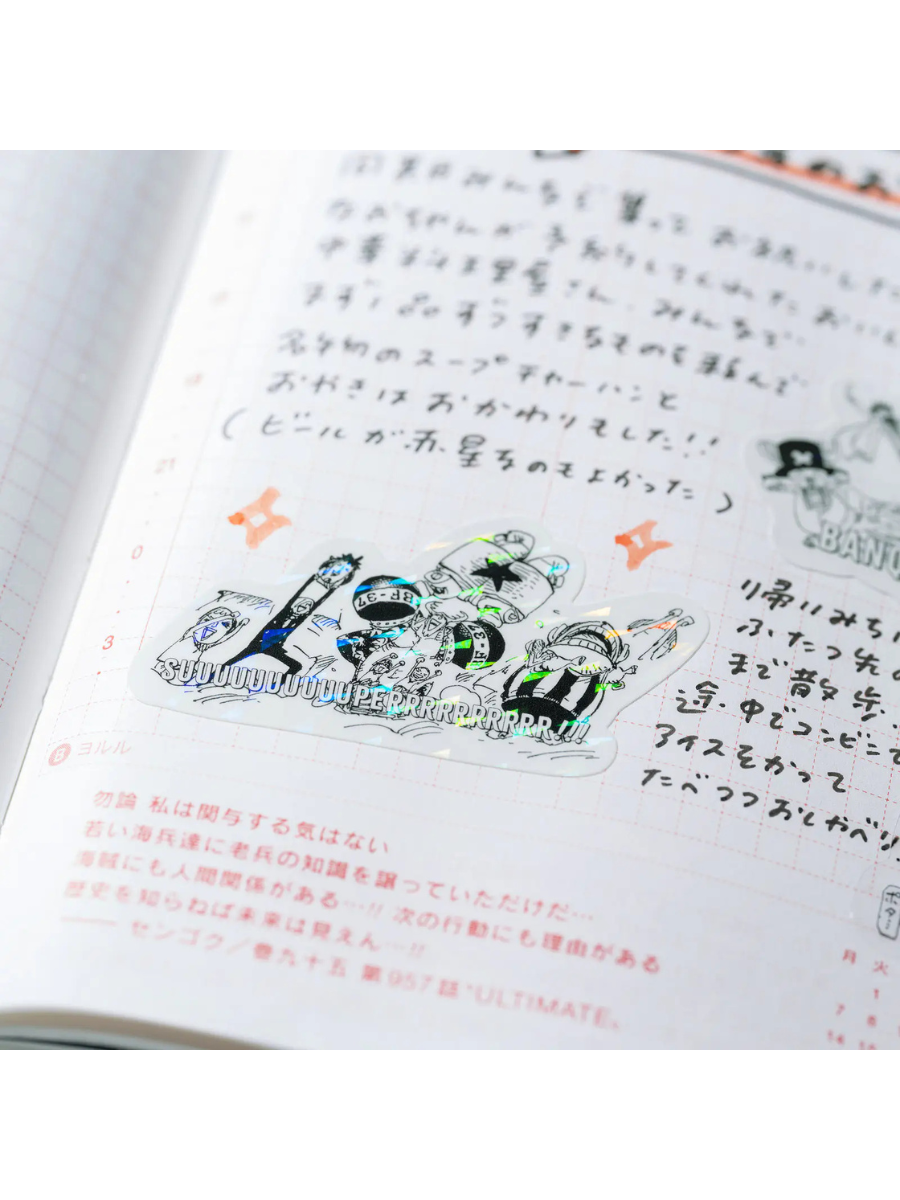 みんなで集って お祝いしした
なおちゃんが予約してくれた おいし
中華料理 星屋さん. みんなで.
まず1品ずつすきなものを頼んで
名物のスープチャーハンと
おやきは おかわりもした!!
(ビールが赤星なのもよかった)
BF-37
SUUUUUUUUUUUPERRRRRRRRRR!!!
BAN
帰りみち
ふたつ先の
まで散歩.
途中でコンビニで
アイスをかって
たべつつおしゃべり
21
0
3
B ヨルル
勿論 私は関与する気はない
若い海兵達に老兵の知識を譲っていただけだ…
海賊にも人間関係がある…!! 次の行動にも理由がある
歴史を知らねば未来は見えん…!!
—— センゴク/巻九十五 第957話"ULTIMATE"
月 火
1
7 8
14 15